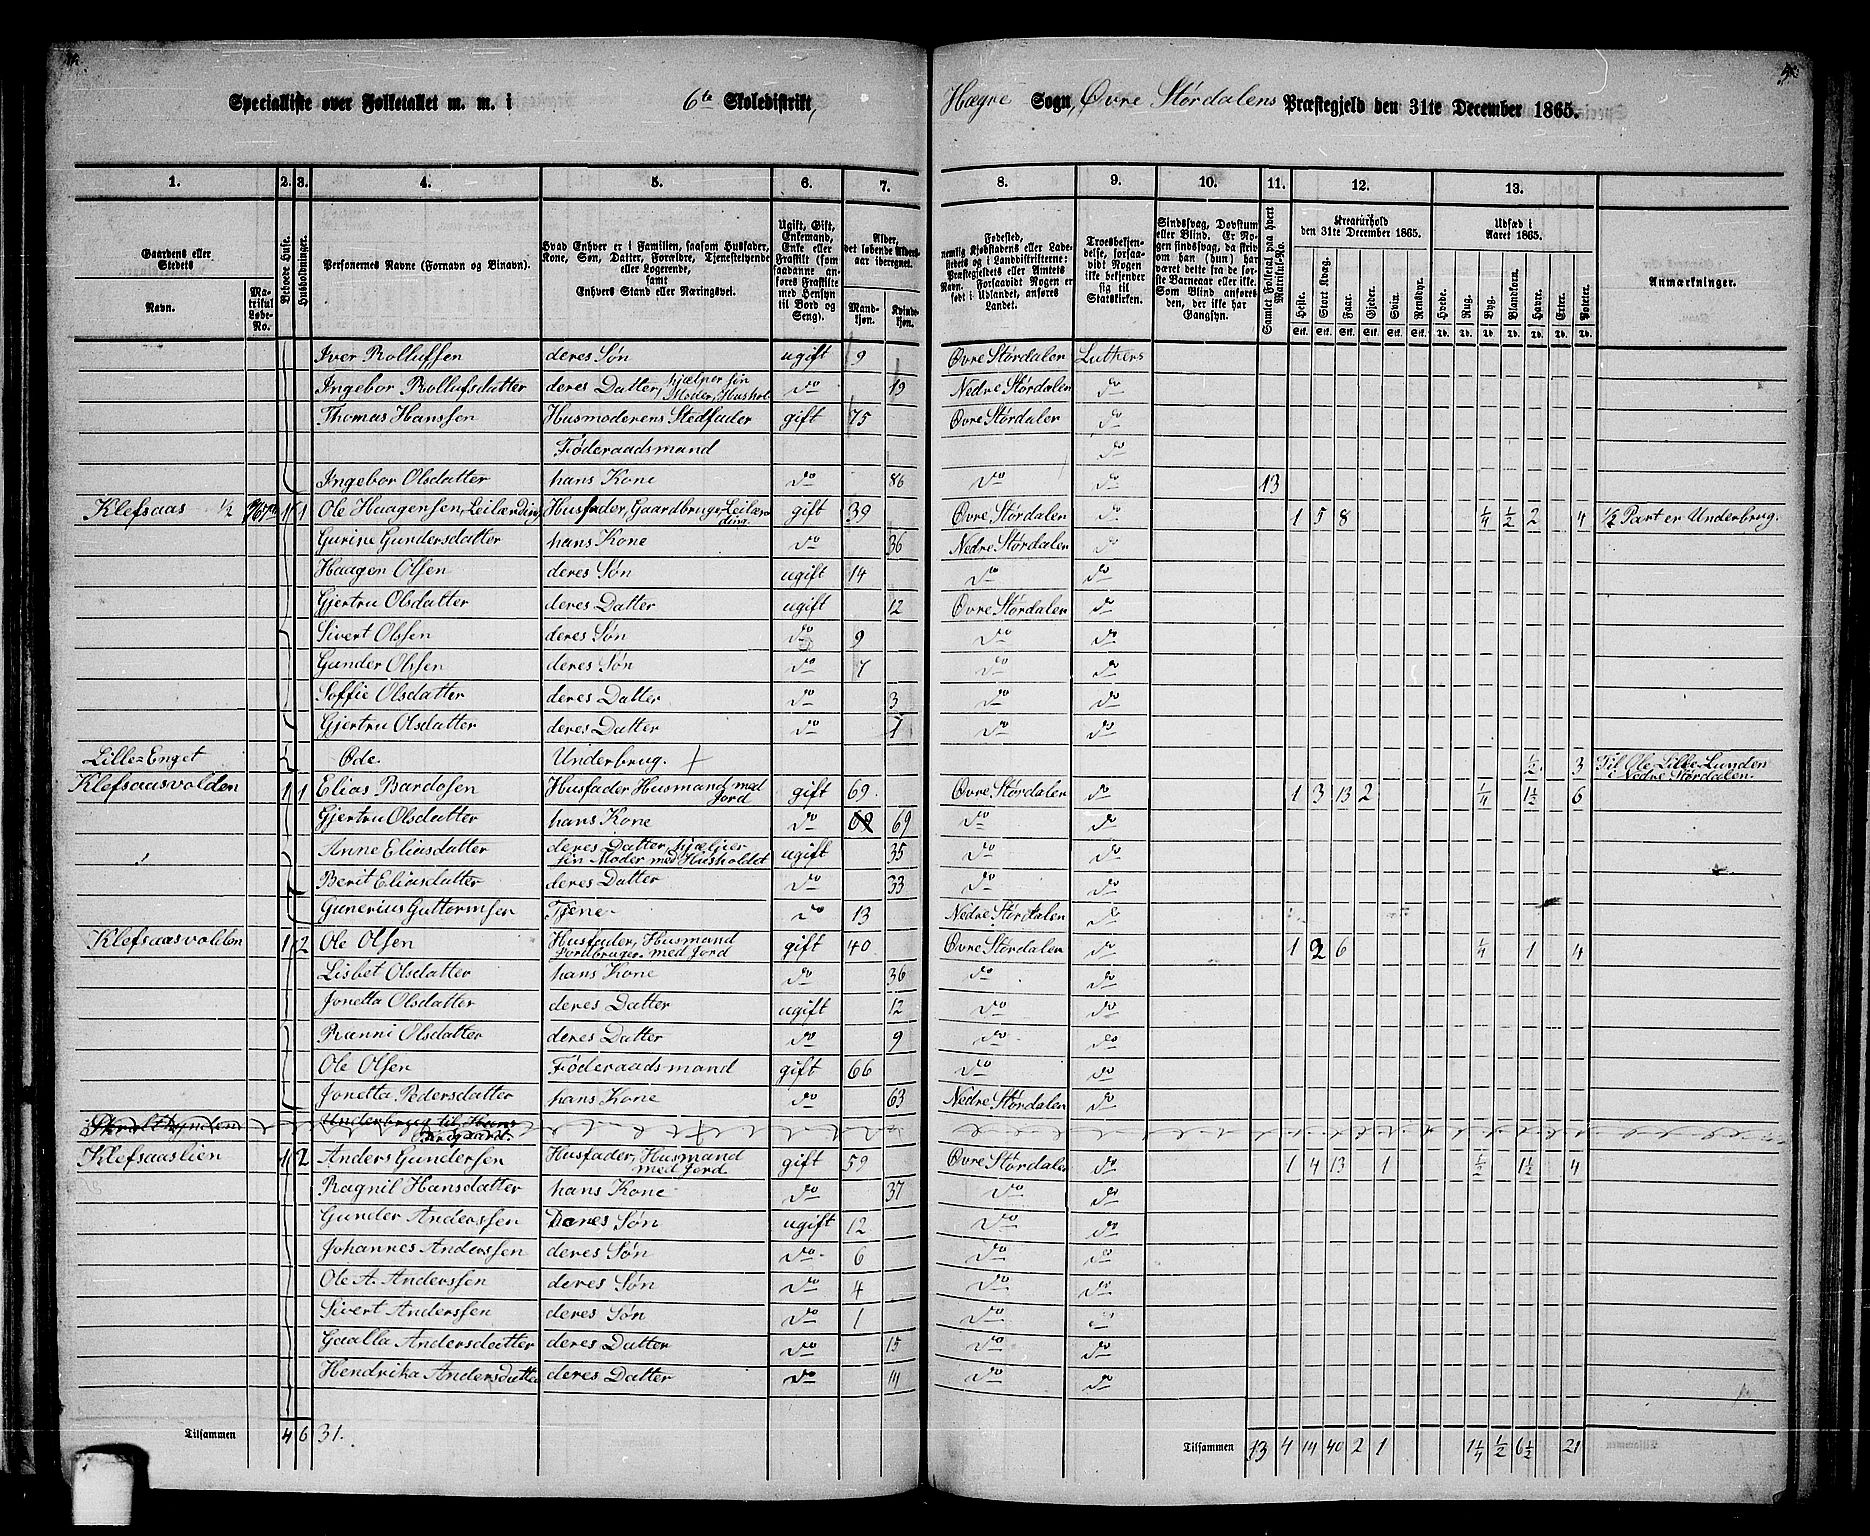 Specialliste over Folketallet m. m. i 6te Skoledistrikt, Hægre Sogn, Øvre Størdalens Præstegjeld den 31te December 1865.
1. 2. 3. 4. 5. 6. 7. 8. 9. 10. 11. 12. 13.
Gaardens eller Stedets
Navn.
Matrikul Løbe-No.
Beboede Huse.
Husholdninger.
Personernes Navne (Fornavn og Binavn).
Hvad Enhver er i Familien, saasom Husfader, Kone, Søn, Datter, Forældre, Tjenestetyende eller Logerende, samt Enhvers Stand eller Næringsvei.
Ugift, Gift, Enkemand, Enke eller Fraskilt (som saadanne anføres Fraskilte med Hensyn til Bord og Seng).
Alder, det løbende Alders-aar iberegnet.
Mandkjøn.
Kvindekjøn.
Fødested, nemlig Kjøbstadens eller Ladestedets og i Landdistrikterne: Præstegjeldets eller Amtets Navn. Forsaavidt Nogen er født i Udlandet, anføres Landet.
Troesbekjendelse, forsaavidt Nogen ikke bekjender sig til Statskirken.
Sindssvag, Døvstum eller Blind. Er Nogen sindssvag, da skriv om han (hun) har været dette fra de første Barneaar eller ikke. Som Blind anføres den, der ikke har Gangsyn.
Samlet Folketal paa hvert Matrikul-No.
Kreaturhold den 31te December 1865.
Heste. Stort Kvæg. Faar. Gjeder. Svin. Rensdyr.
Udsæd i Aaret 1865.
Hvede. Rug. Byg. Blandkorn. Havre. Erter. Poteter.
Anmærkninger.
Iver Rolluffsen deres Søn ugift 9 Øvre Størdalen Luthers
Ingebor Rollufsdatter deres Datter, hjælper sin Moder, Hushol do 19 Nedre Størdalen do
Thomas Hanssen Husmoderens Stedfader gift 75 Øvre Størdalen do
Føderaadsmand do
Ingebor Olsdatter hans Kone do 86 do do 13
Klefsaas 1/2 1 1 Ole Haagensen, Leilænding Husfader, Gaardbrug, Leilænding. gift 39 Øvre Størdalen do 1 5 8 1/4 1/2 2 4 1/2 Part er Underbrug.
Gurine Gundersdatter hans Kone do 36 Nedre Størdalen do
Haagen Olsen deres Søn ugift 14 do do
Gjertru Olsdatter deres Datter ugift 12 Øvre Størdalen do
Sivert Olssen deres Søn do 9 do do
Gunder Olssen deres Søn do 7 do do
Soffie Olsdatter deres Datter do 3 do do
Gjertru Olsdatter deres Datter do 1 do do
Lille-Enget Øde. Underbrug. 1/2 3 Til Ole Lille-Lunden i Nedre Størdalen.
Klefsaasvolden 1 1 Elias Bardosen Husfader Husmand med Jord gift 69 Øvre Størdalen do 1 3 13 2 1/4 1 1/2 6
Gjertru Olsdatter hans Kone do 69 69 do do
Anne Eliasdatter deres Datter, hjælper sin Moder med Husholdet ugift 35 do do
Berit Eliasdatter deres Datter do 33 do do
Gunerius Guttormsen Tjene- do 13 Nedre Størdalen do
Klefsaasvolden 1 2 Ole Olsen Husfader, Husmand Jordbruger med Jord gift 40 Øvre Størdalen do 1 2 6 1/4 1 4
Lisbet Olsdatter hans Kone do 36 do do
Jonetta Olsdatter deres Datter ugift 12 do do
Ranni Olsdatter deres Datter do 9 do do
Ole Olsen Føderaadsmand gift 66 do do
Jonetta Pedersdatter hans Kone do 63 Nedre Størdalen do
Underbrug til Hans
Klefsaaslien 1 2 Anders Gundersen Husfader, Husmand med Jord gift 59 Øvre Størdalen do 1 4 13 1 1/2 1 1/2 4
Ragnil Hansdatter hans Kone do 37 do do
Gunder Anderssen Deres Søn ugift 12 do do
Johannes Anderssen deres Søn do 6 do do
Ole A. Anderssen deres Søn do 4 do do
Sivert Anderssen deres Søn do 1 do do
Gaalla Andersdatter deres Datter do 15 do do
Hendrika Andersdatter deres Datter do do do
Tilsammen 4 6 31. Tilsammen 13 4 14 40 2 1 1 1/4 1/2 6 1/2 21